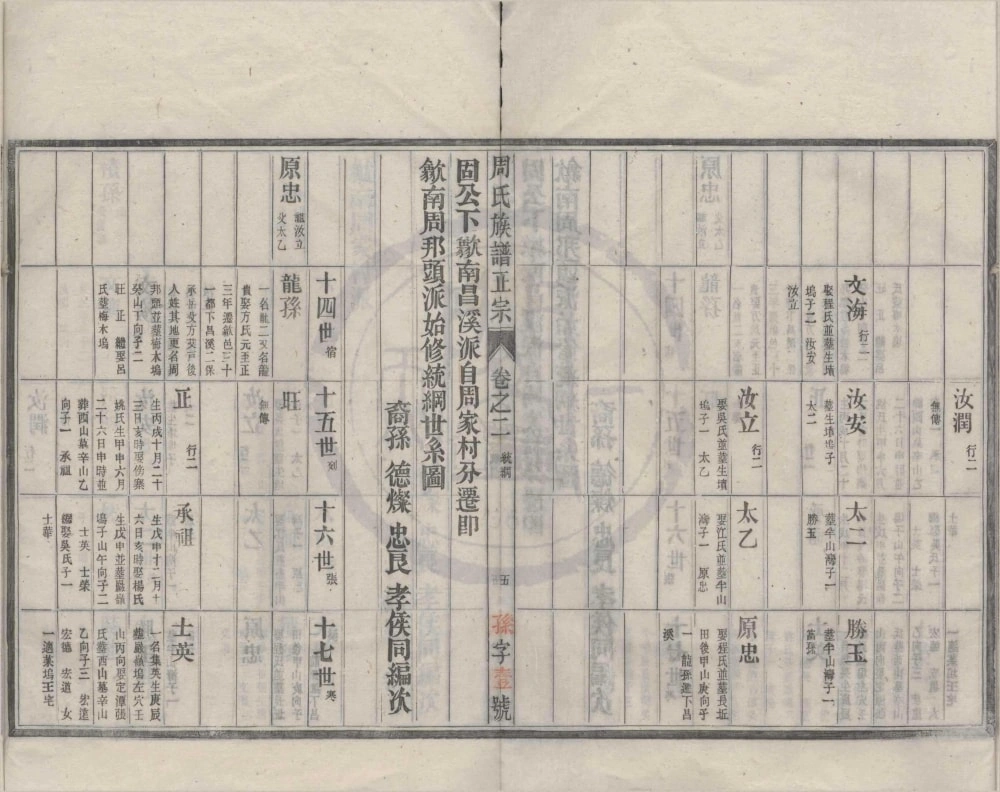 汝潤 行二
無傳
文海 行二
娶程氏並墓生墳
塢子二 汝安
汝立
汝安
墓生墳塢子
一 太二
太二
墓牛山灣子一
勝玉
勝玉
墓牛山灣子一
富孫
汝立 行二
娶吳氏並墓生墳
塢子一 太乙
太乙
娶江氏並墓牛山
灣子一 原忠
原忠
娶程氏並墓長坵
田後甲山庚向子
一 龍孫遷下昌
溪
周氏族譜正宗
卷之二
五
孫字壹號
固公下歙南昌溪派自周家村分遷即
歙南周邦頭派始修統綱世系圖
裔孫 德燦 忠良 孝侯同編次
十四世 宿
十五世 列
十六世 張
十七世 寒
原忠
父太乙
龍孫
一名龍二又名龍
貴娶方氏元至正
三年遷歙邑三十
一都下昌溪二保
承岳父方荚戶後
人姓其地更名周
癸山丁向子二
旺 正 繼娶呂
氏墓梅木塢
旺
無傳
正 行二
生丙戌十月二十
三日亥時娶傍寨
姚氏生甲申六月
二十六日申時並
葬酉山墓辛山乙
向子一 承祖
承祖
生戊申十二月十
六日亥時娶楊氏
生戊申並墓嚴嶺
塢子山午向子二
士英 士榮
繼娶吳氏子一
士華
士英
一名集英生庚辰
墓嚴嶺塢左穴壬
山丙向娶定潭張
氏墓西山墓辛山
乙向子三 宏遠
宏德 宏道 女
一適葉塢王宅